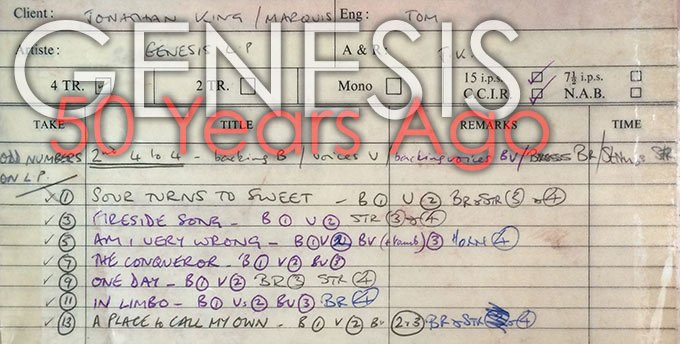 Client: JONATHAN KING / MARQUIS Eng: TOM
Artiste: GENESIS L.P A & R: J.K.
GENESIS
4 TR. 2 TR. Mono 15 i.p.s. 7½ i.p.s.
C.C.I.R. N.A.B.
50 Years Ago
TAKE TITLE REMARKS TIME
ODD NUMBERS 2nd 4 to 4 - backing B / voices V / backing voices BV / BRASS BR / Strings STR
ON L.P.
x 1 SOUR TURNS TO SWEET - B 1 V 2 BR & STR 3 & 4
✓ 3 FIRESIDE SONG - B 1 V 2 STR 3 & 4
✓ 5 AM I VERY WRONG - B 1 V 2 BV 3 HORN 4
✓ 7 THE CONQUEROR - B 1 V 2 BV 3
✓ 9 ONE DAY - B 1 V 2 BR 3 STR 4
✓ 11 IN LIMBO - B 1 Vs 2 BV 3 BR 4
✓ 13 A PLACE to CALL MY OWN - B 1 V 2 BV 2+3 BR & STR & 4